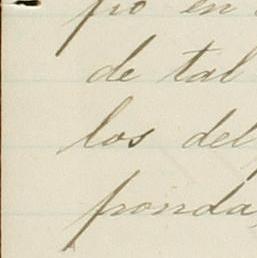 pio en
de tal
los del
fronda,